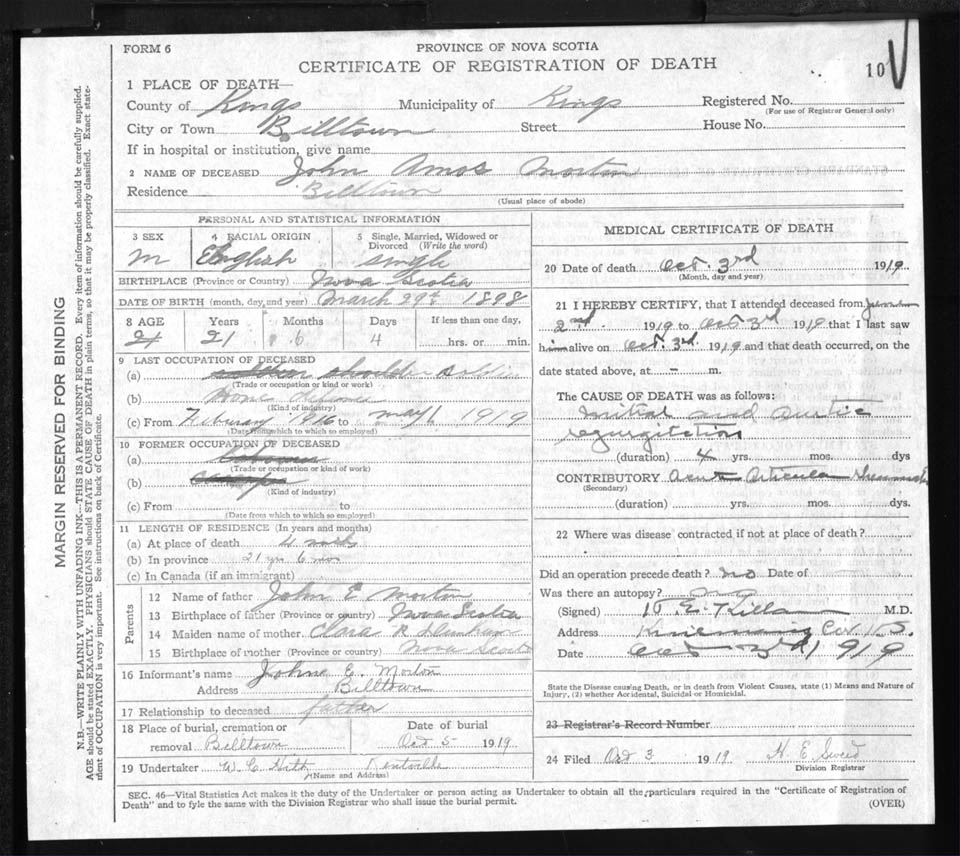 FORM 6
PROVINCE OF NOVA SCOTIA
CERTIFICATE OF REGISTRATION OF DEATH
10
1 PLACE OF DEATH—
County of Kings Municipality of Kings Registered No.
(For use of Registrar General only)
City or Town Billtown Street House No.
If in hospital or institution, give name
2 NAME OF DECEASED John Amos Morton
Residence Billtown
(Usual place of abode)
PERSONAL AND STATISTICAL INFORMATION
3 SEX 4 RACIAL ORIGIN 5 Single, Married, Widowed or Divorced (Write the word)
M English single
BIRTHPLACE (Province or Country) Nova Scotia
DATE OF BIRTH (month, day, and year) March 29th 1898
8 AGE Years Months Days If less than one day,
21 21 6 4 hrs. or min.
9 LAST OCCUPATION OF DECEASED
(a) soldier
(Trade or occupation or kind of work)
(b) Home defence
(Kind of industry)
(c) From February 1916 to May 1 1919
(Date from which to which so employed)
10 FORMER OCCUPATION OF DECEASED
(a)
(Trade or occupation or kind of work)
(b)
(Kind of industry)
(c) From to
(Date from which to which so employed)
11 LENGTH OF RESIDENCE (In years and months)
(a) At place of death 4
(b) In province 21 yrs 6 mos
(c) In Canada (if an immigrant)
Parents
12 Name of father John E Morton
13 Birthplace of father (Province or country) Nova Scotia
14 Maiden name of mother Clara R
15 Birthplace of mother (Province or country) Nova Scotia
16 Informant's name Johne E. Morton
Address Billtown
17 Relationship to deceased father
18 Place of burial, cremation or removal Billtown
Date of burial Oct 5 1919
19 Undertaker W. C. Kentville
(Name and Address)
MEDICAL CERTIFICATE OF DEATH
20 Date of death Oct. 3rd 1919
(Month, day and year)
21 I HEREBY CERTIFY, that I attended deceased from
2nd. 1919 to Oct 3rd 1919 that I last saw
him alive on Oct. 3rd 1919 and that death occurred, on the
date stated above, at - m.
The CAUSE OF DEATH was as follows:
Mitral and Aortic
regurgitation
(duration) 4 yrs. mos. dys
CONTRIBUTORY Acute Articular Rheumatism
(Secondary)
(duration) yrs. mos. dys.
22 Where was disease contracted if not at place of death?
Did an operation precede death? no Date of
Was there an autopsy? no
(Signed) E. Killam M.D.
Address Co. N.S.
Date Oct 3rd 1919
State the Disease causing Death, or in death from Violent Causes, state (1) Means and Nature of
Injury, (2) whether Accidental, Suicidal or Homicidal.
23 Registrar's Record Number
24 Filed Oct 3 1919 H. E.
Division Registrar
SEC. 46—Vital Statistics Act makes it the duty of the Undertaker or person acting as Undertaker to obtain all the particulars required in the "Certificate of Registration of
Death" and to fyle the same with the Division Registrar who shall issue the burial permit.
(OVER)
MARGIN RESERVED FOR BINDING
N.B.—WRITE PLAINLY WITH UNFADING INK—THIS IS A PERMANENT RECORD. Every item of information should be carefully supplied.
AGE should be stated EXACTLY. PHYSICIANS should STATE CAUSE OF DEATH in plain terms, so that it may be properly classified. Exact state-
ment of OCCUPATION is very important. See instructions on back of Certificate.